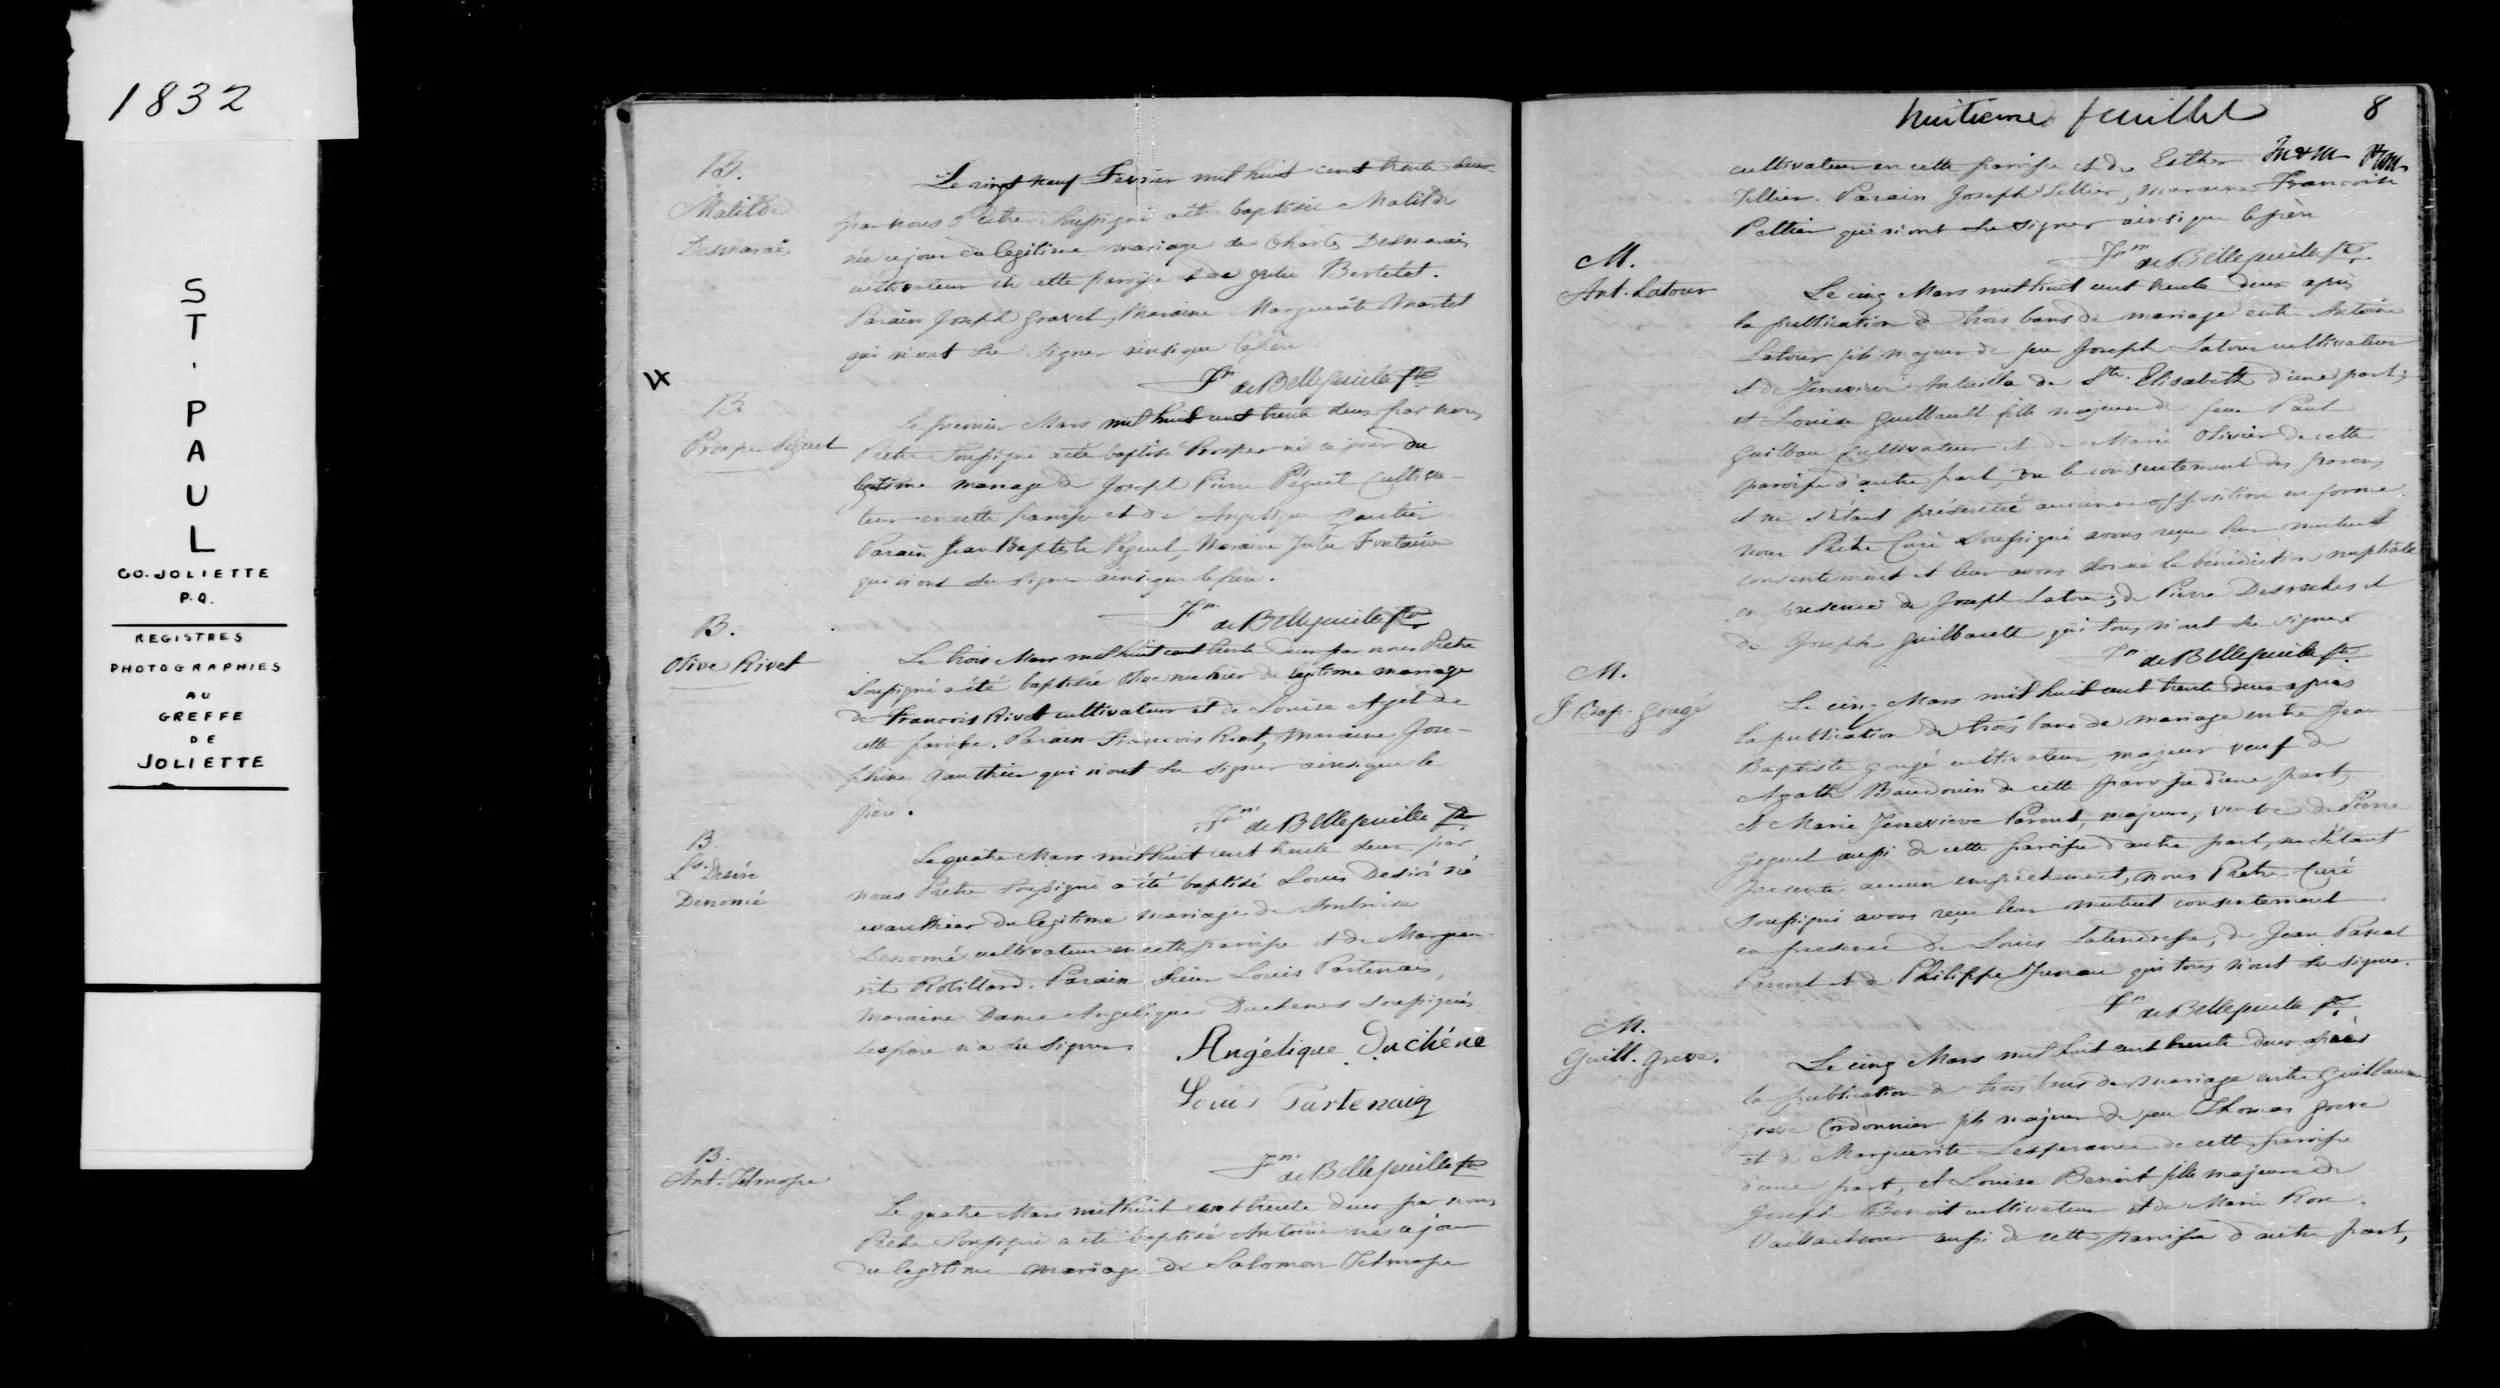 1832
ST. PAUL
CO. JOLIETTE
P.Q.
REGISTRES
PHOTOGRAPHIES
AU
GREFFE
DE
JOLIETTE
B.
Matilde
Desmarais
Le vingt neuf Fevrier mil huit cent trente deux
par nous Prêtre Soussigné a été baptisée Matilde
née ce jour du legitime mariage de Charles Desmarais
cultivateur de cette paroisse & de Julie Bertelet.
Parain Joseph Gravel, Maraine Marguerite Martel
qui n'ont su signer ainsi que le père
Fn de Bellefeuille Ptre
B.
Prosper Piquet
Le premier Mars mil huit cent trente deux par nous
Prêtre Soussigné a été baptisé Prosper né ce jour du
legitime mariage de Joseph Pierre Péquet Cultiva-
teur en cette paroisse et de Angelique Gautier
Parain Jean Baptiste Peguet, Maraine Julie Fontaine
qui n'ont su signer ainsi que le père.
Fn de Bellefeuille Ptre
B.
Olive Rivet
Le trois Mars mil huit cent trente deux par nous Prêtre
Soussigné a été baptisée Olive née hier du légitime mariage
de Francois Rivet cultivateur et de Louise Aget de
cette paroisse. Parain Francois Rivet, Maraine Jose-
phine Gauthier qui n'ont su signer ainsi que le
père.
Fn de Bellefeuille Ptre
B.
Ls. Désiré
Denomé
Le quatre Mars mil huit cent trente deux par
nous Prêtre Soussigné a été baptisé Louis Desiré né
avant hier du legitime mariage de Ambroise
Denomé cultivateur en cette paroisse et de Margue-
rite Robillard. Parain Sieur Louis Partenais,
Maraine Dame Angelique Duchene soussignés
le père n'a su signer
Angélique Duchéne
Louis Partenaiz
Fn de Bellefeuille Ptre
B.
Ant. Telmosse
Le quatre Mars mil huit cent trente deux par nous
Prêtre Soussigné a été baptisé Antoine né ce jour
du legitime mariage de Salomon Telmosse
huitieme feuillet 8
cultivateur en cette paroisse et de Esther
Tellier. Parain Joseph Tellier, Maraine Francoise
Peltier qui n'ont su signer ainsi que le père
Fn de Bellefeuille Ptre
M.
Ant. Latour
Le cinq Mars mil huit cent trente deux après
la publication de trois bans de mariage entre Antoine
Latour fils majeur de feu Joseph Latour cultivateur
et de Genevieve de Ste. Elisabeth d'une part;
et Louise Guilbault fille majeure de feu Paul
Guilbau Cultivateur et de Marie Olivier de cette
paroisse d'autre part, vu le consentement des parens
et ne s'étant présentée aucune opposition en forme
nous Prêtre Curé Soussigné avons reçu leur mutuel
consentement et leur avons donné la bénédiction nuptiale
en presence de Joseph Latour, de Pierre Desroches et
de Joseph Guilbault qui tous n'ont su signer
Fn de Bellefeuille Ptre
M.
J. Bap. Gougé
Le cinq Mars mil huit cent trente deux apres
la publication de trois bans de mariage entre Jean
Baptiste Gougé cultivateur, majeur veuf de
Agathe Baudouin de cette paroisse d'une part,
et Marie Genevieve Parent, majeure, veuve de Pierre
aussi de cette paroisse d'autre part, ne s'étant
presenté aucun empêchement, nous Prêtre Curé
soussigné avons reçu leur mutuel consentement
en presence de Louis Salendresse, de Jean Pascal
Parent et de Philippe Juneau qui tous n'ont su signer.
Fn de Bellefeuille Ptre
M.
Guill. Greve.
Le cinq Mars mil huit cent trente deux après
la publication de trois bans de mariage entre Guillaume
Greve Cordonnier fils majeur de feu Thomas Greve
et de Marguerite Lesperance de cette paroisse
d'une part, et Louise Benoit fille majeure de
Joseph Benoit cultivateur et de Marie Rose
Vaillancour aussi de cette paroisse d'autre part,